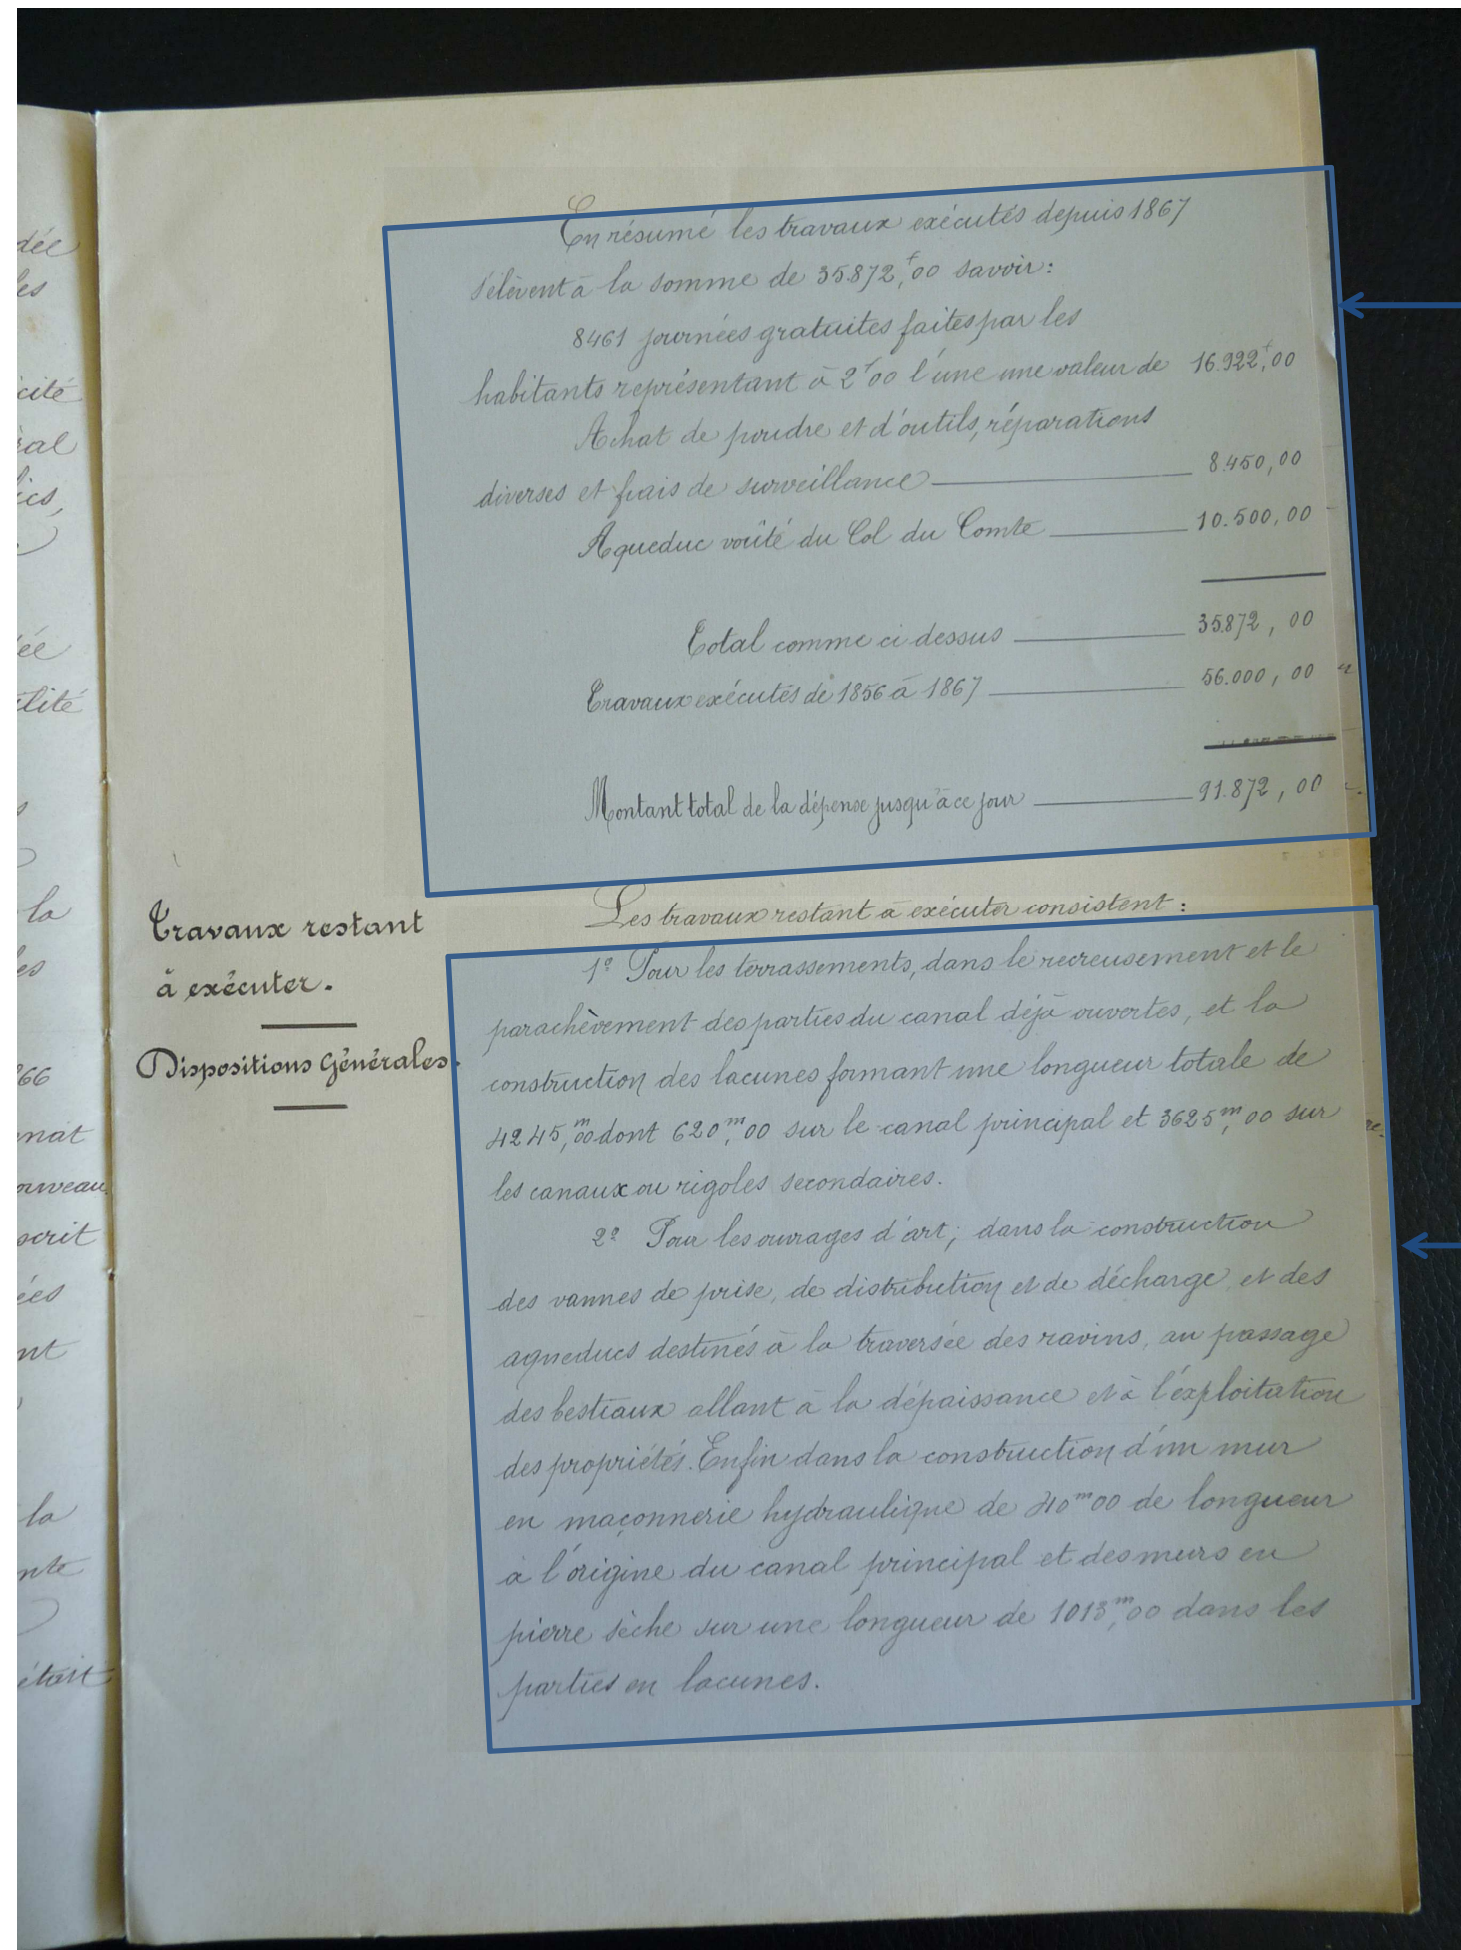 dée
les
cité
ral
ics,
ée
lité
la
les
66
nat
ouveau
scrit
ées
nt
la
nte
était
En résumé les travaux exécutés depuis 1867
s'élèvent à la somme de 35.872,f00 savoir:
8461 journées gratuites faites par les
habitants représentant à 2f00 l'une une valeur de 16.922,f00
Achat de poudre et d'outils, réparations
diverses et frais de surveillance 8.450,00
Aqueduc voûté du Col du Comte 10.500,00
Total comme ci dessus 35.872,00
Travaux exécutés de 1856 à 1867 56.000,00
Montant total de la dépense jusqu'à ce jour 91.872,00
Travaux restant
à exécuter.
Dispositions Générales.
Les travaux restant à exécuter consistent:
1º Pour les terrassements, dans le recreusement et le
parachèvement des parties du canal déjà ouvertes, et la
construction des lacunes formant une longueur totale de
4245,m00 dont 620,m00 sur le canal principal et 3625,m00 sur
les canaux ou rigoles secondaires.
2º Pour les ouvrages d'art; dans la construction
des vannes de prise, de distribution et de décharge, et des
aqueducs destinés à la traversée des ravins, au passage
des bestiaux allant à la dépaissance et à l'exploitation
des propriétés. Enfin dans la construction d'un mur
en maçonnerie hydraulique de 40m00 de longueur
à l'origine du canal principal et des murs en
pierre sèche sur une longueur de 1013,m00 dans les
parties en lacunes.